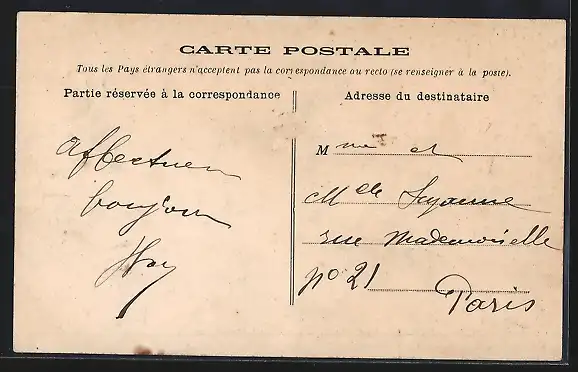 CARTE POSTALE
Tous les Pays étrangers n'acceptent pas la correspondance au recto (se renseigner à la poste).
Partie réservée à la correspondance
Adresse du destinataire
Affectueux
bonjour
Mme et
Melle
rue Mademoiselle
no 21
Paris